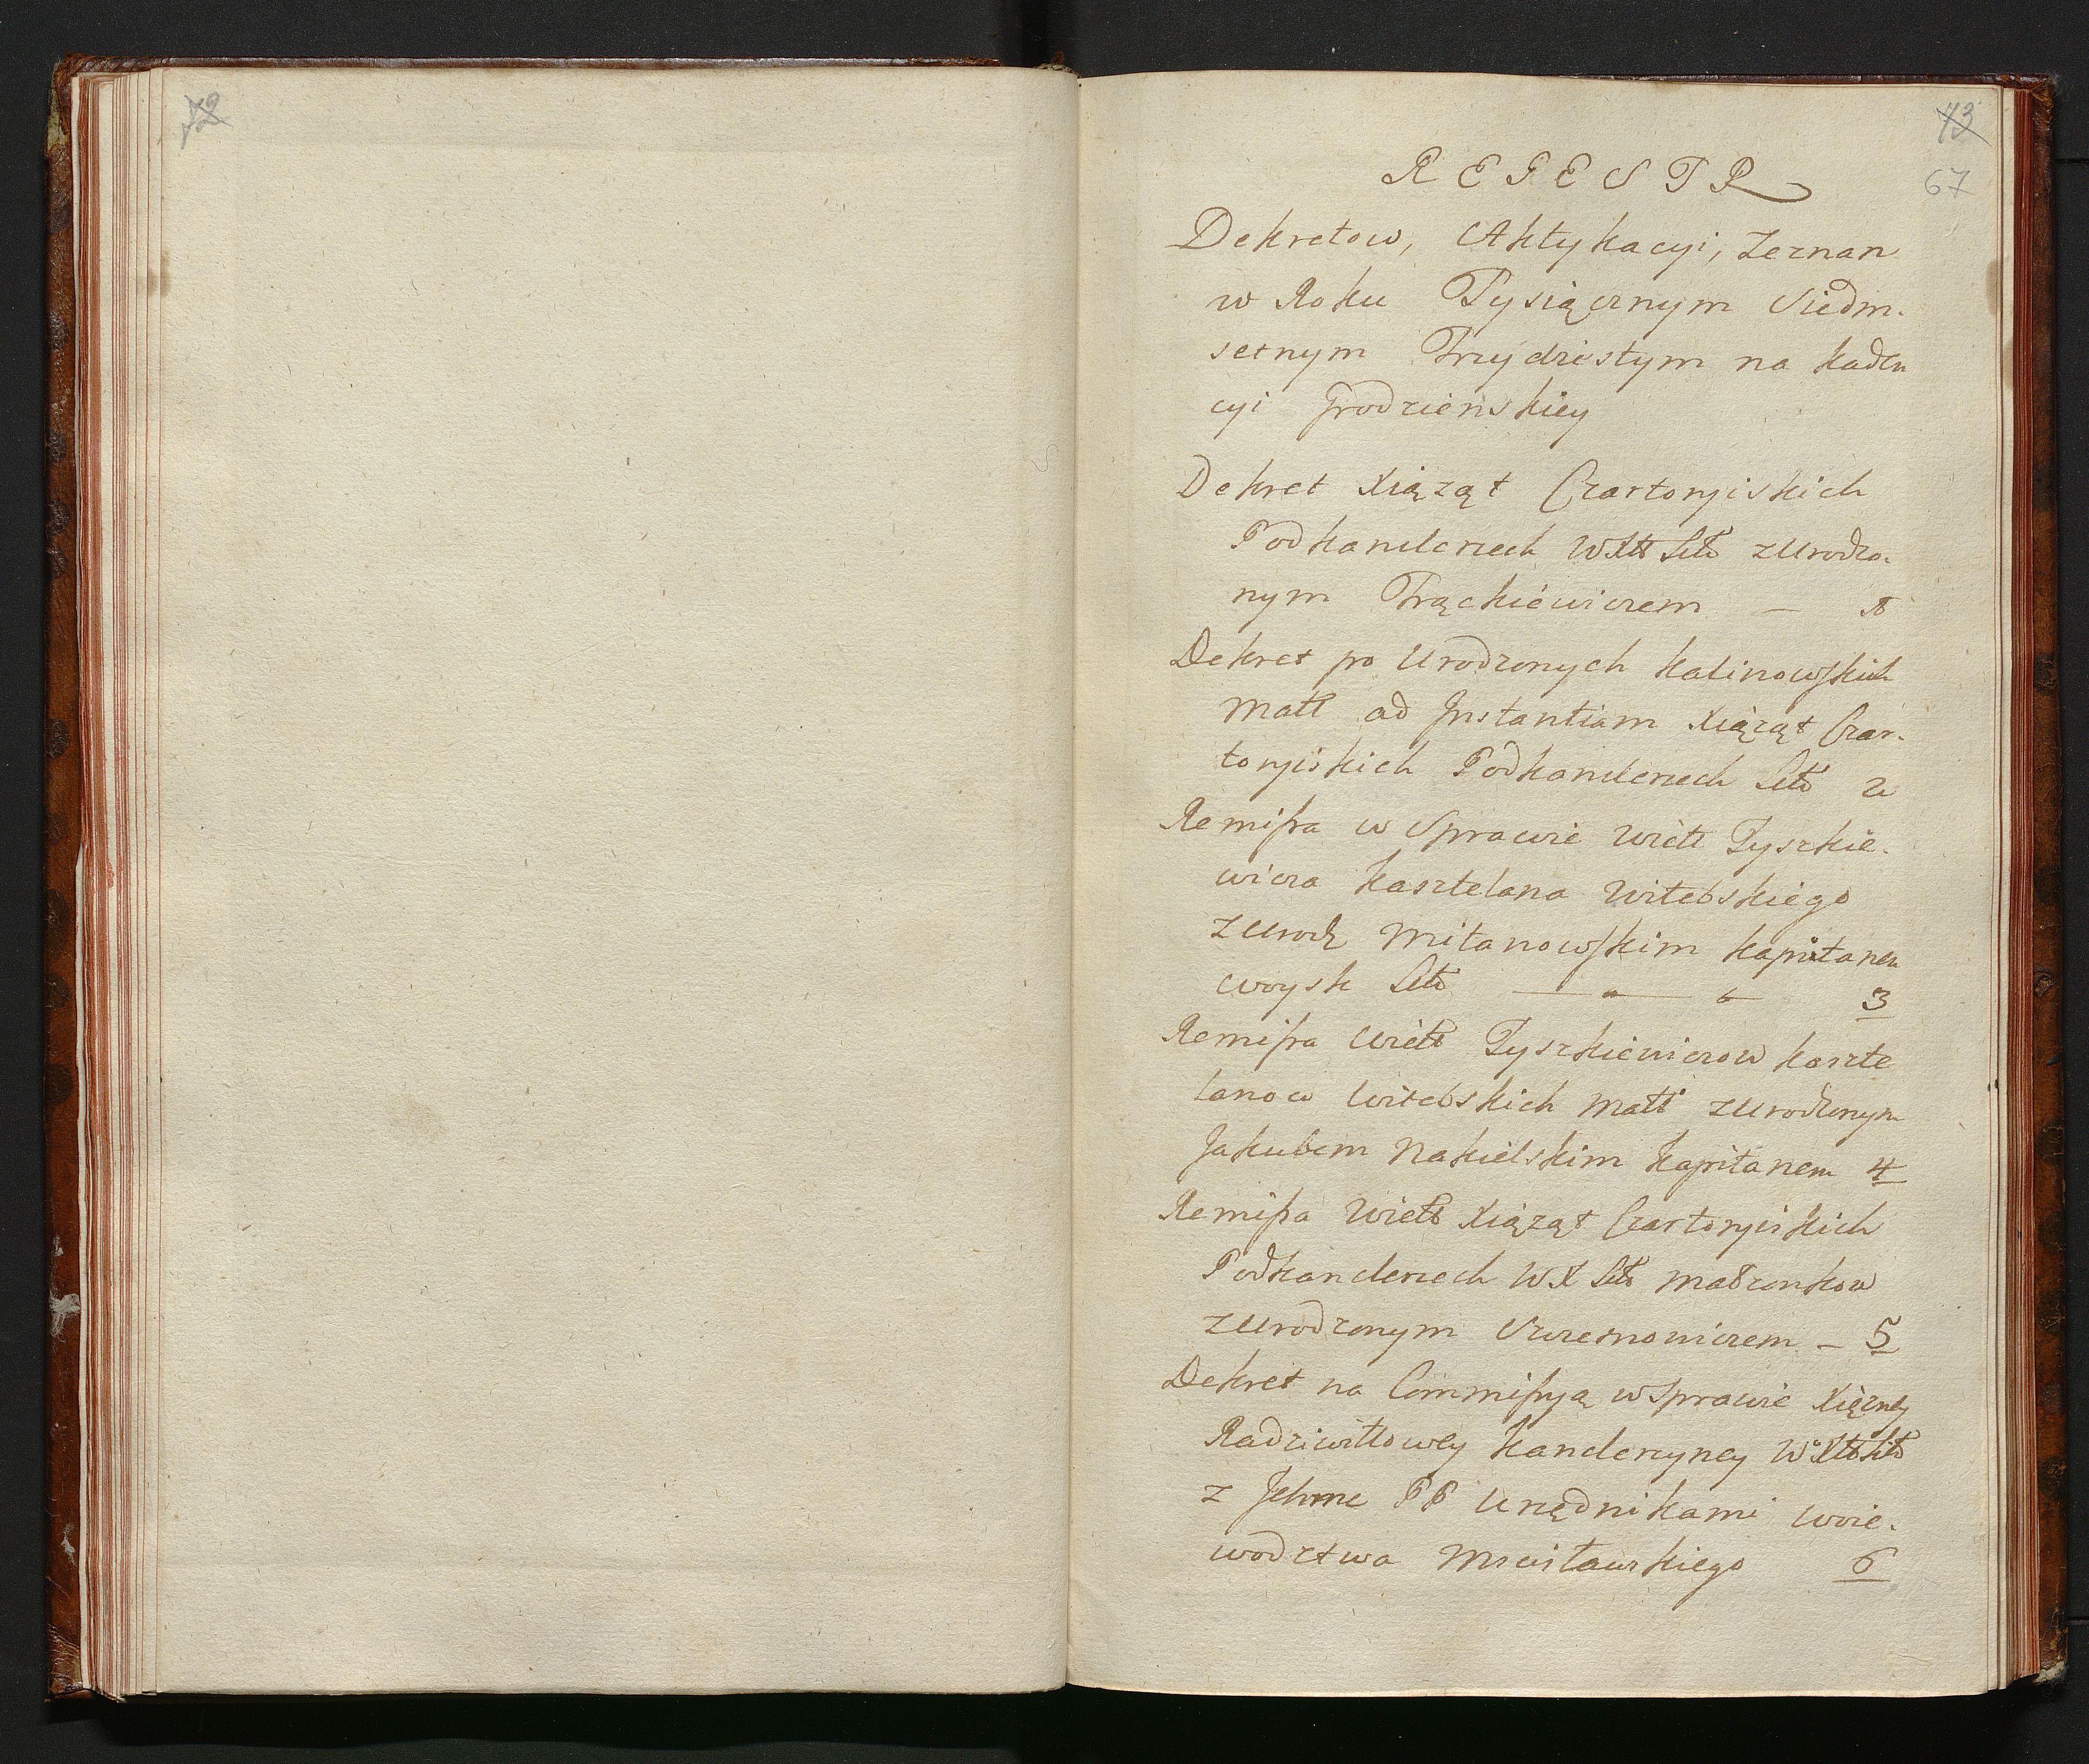 72
73
67
REGESTR
Dekretow, Aktykacyi, Zeznan
w Roku Tysiącznym Siedm.
setnym Trzydziestym na kaden
cyi Grodzienskiey
Dekret Xiążąt Czartoryiskich
Podkanclerzech WX Litt zUrodzo.
nym Trąckiewiczem —
Dekret po Urodzonych Kalinowskich
Matt ad Instantiam Xiążąt Czar.
toryiskich Podkanclerzech Litt 2
Remissa w Sprawie Wielt Tyszkie.
wicza Kasztelana Witebskiego
z Urodz Milanowskim Kapitanem
Woysk Litt — 3
Remissa Wielt Tyszkiewiczow Kaszte
lanow Witebskich Matt z Urodzonym
Jakubem Nakielskim Kapitanem 4
Remissa Wielt Xiążąt Czartoryiskich
Podkanclerzech WX Litt Małzonkow
z Urodzonym — 5
Dekret na Commissyą w Sprawie Xiężney
Radziwiłłowey Kanclerzyney WX Litt
z Jchmc PP Urzędnikami Woie.
wodztwa Mscisławskiego 6